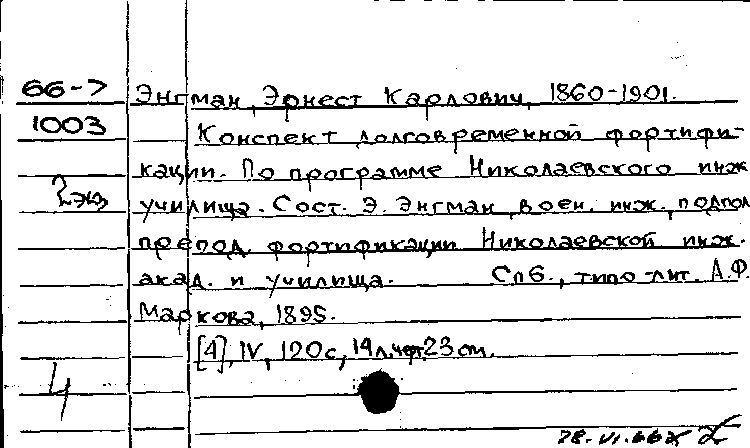 66-7 Энгман, Эрнест Карлович, 1860-1901.
1003 Конспект долговременной фортифи-
кации. По программе Николаевского инж
2экз училища. Сост. Э. Энгман, воен. инж., подпол
препод. фортификации Николаевской инж.
акад. и училища. Спб., типо-лит. А.Ф.
Маркова, 1895.
[4], IV, 120 с, 14 л. черт. 23 см.
4